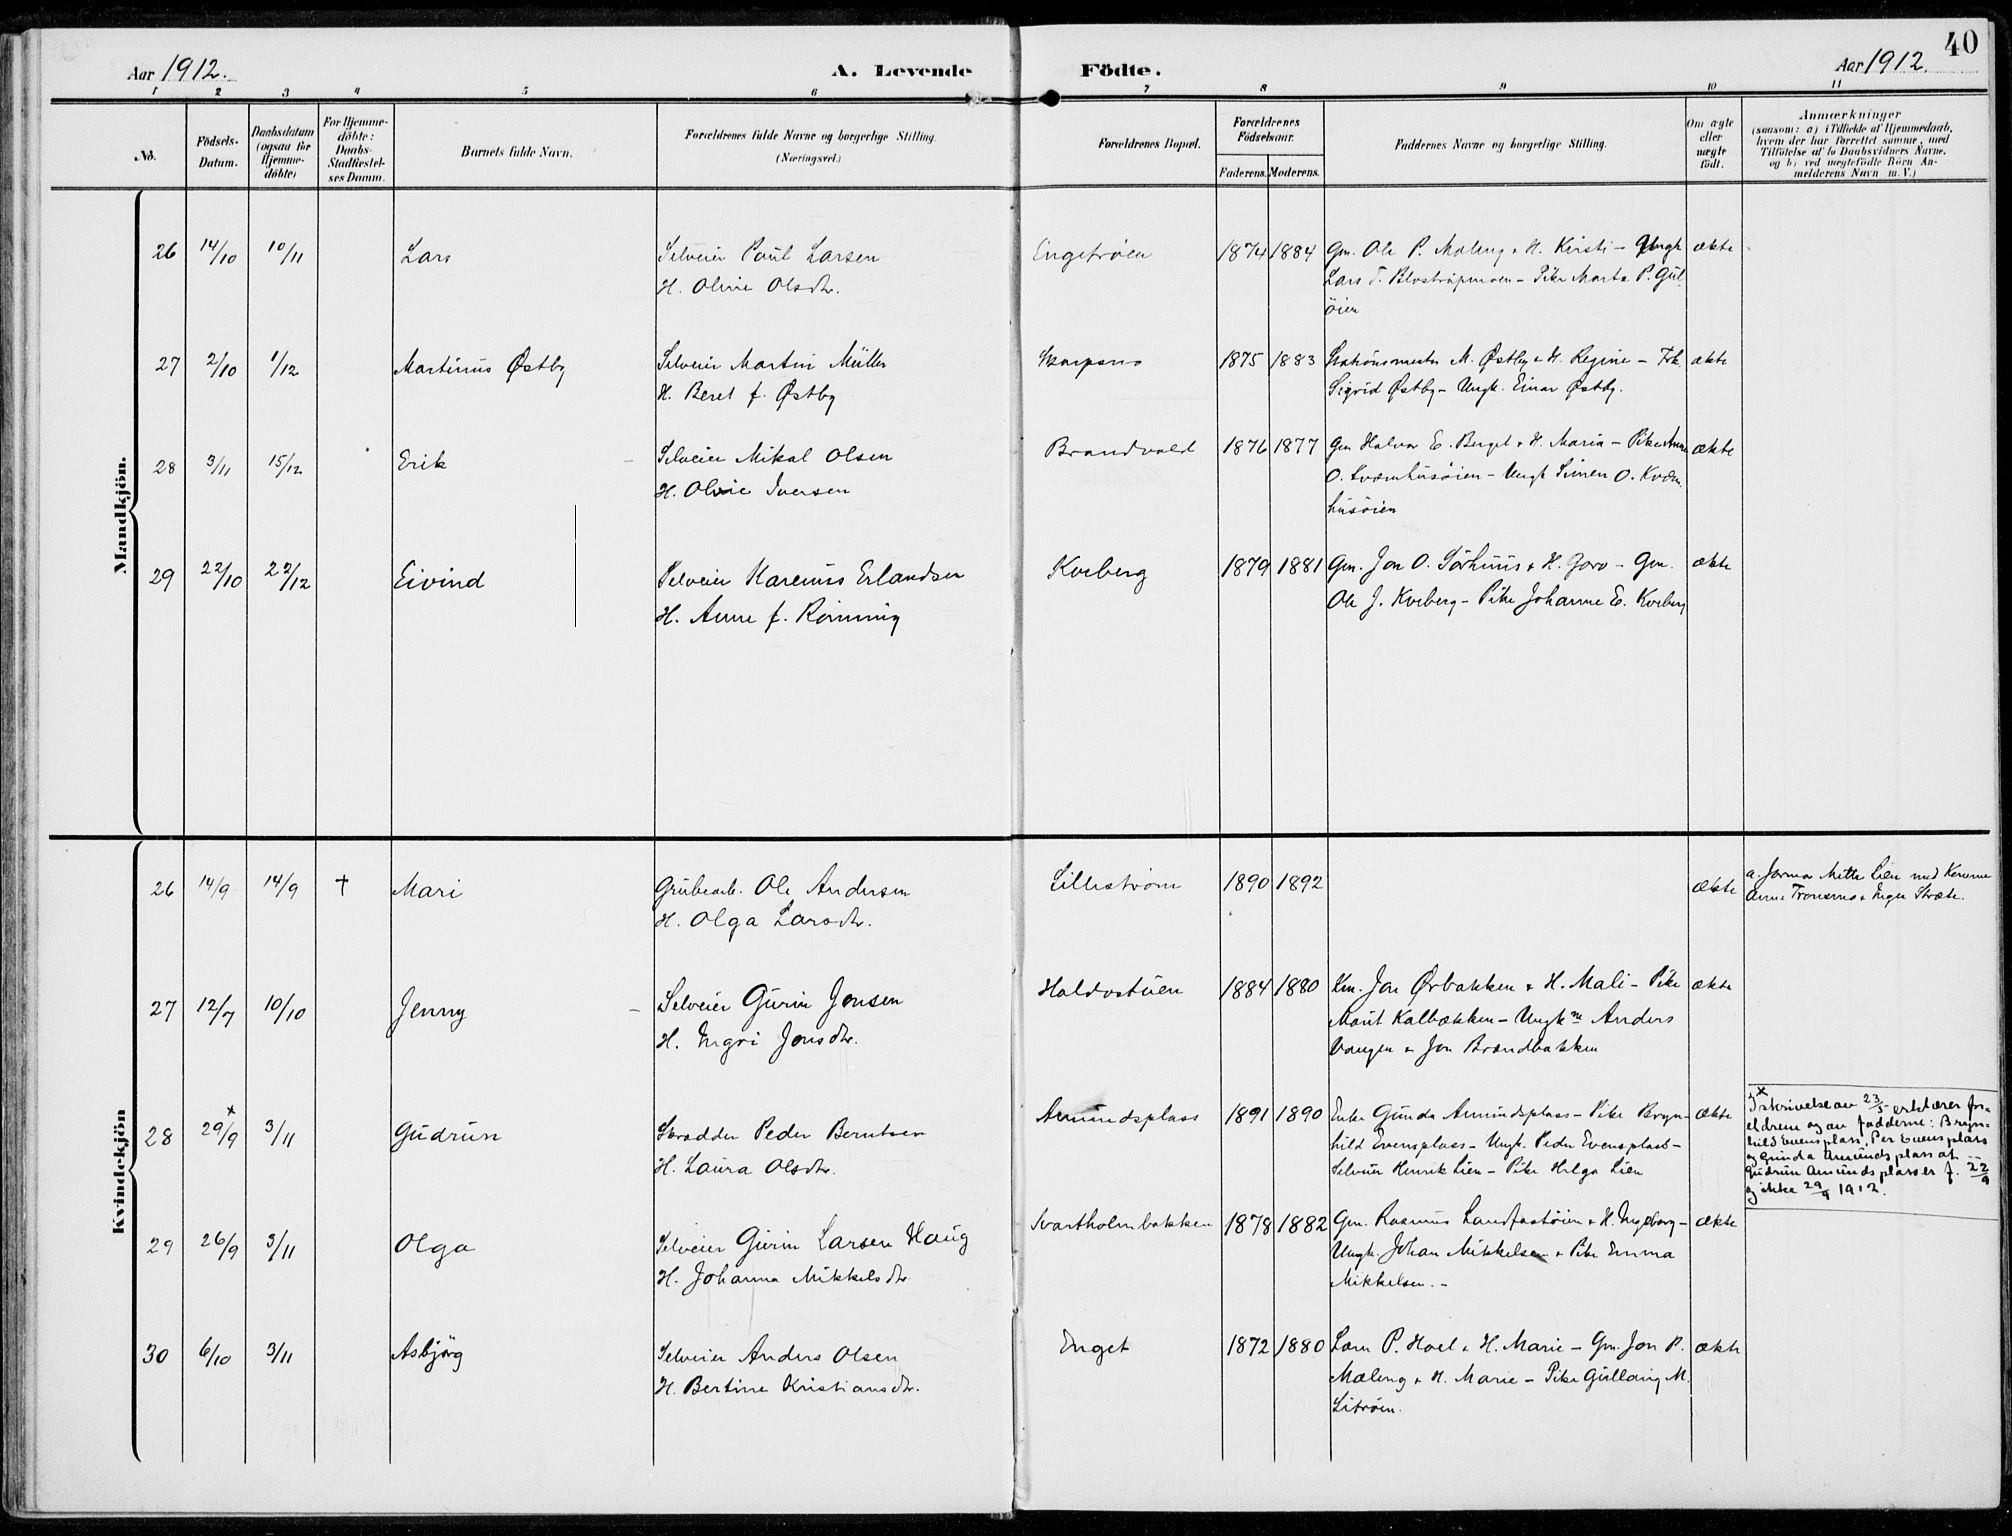 40
Aar 1912.
A. Levende
Födte.
Aar 1912.
1 2 3 4 5 6 7 8 9 10 11
No.
Födsels-
Datum.
Daabsdatum
(ogsaa for
Hjemme-
döbte)
For Hjemme-
döbte:
Daabs-
Stadfæstel-
ses Datum.
Barnets fulde Navn.
Forældrenes fulde Navne og borgerlige Stilling.
(Næringsvei.)
Forældrenes Bopæl.
Forældrenes
Födselsaar.
Faderens. Moderens.
Faddernes Navne og borgerlige Stilling.
Om ægte
eller
uægte
födt.
Anmærkninger
(saasom: a) i Tilfælde af Hjemmedaab,
hvem der har forrettet samme, med
Tilföielse af to Daabsvidners Navne.
og b) ved uægtefödte Börn An-
melderens Navn m. V.)
Mandkjön.
26 14/10 10/11 Lars Selveier Paul Larsen Engetrøen 1874 1884 Gm. Ole P. Moleng & H. Kirsti – Ungk ækte
H. Oline Olsdtr. Lars T. – Pike Marte P. Gul-
öien
27 2/10 1/12 Martinus Østby Selveier Martin Müller Skarpsno 1875 1883 Stationsmester M. Østby & H. Regine – Frk. ækte
H. Beret f. Østby Sigrid Østby – Ungk. Einar Østby.
28 3/11 15/12 Erik Selveier Mikal Olsen Brandvold 1876 1877 Gm Halvor E. Berget & H. Maria – Pike Anne ækte
H. Olvie Iversen O. Kværnhusöien – Ungk Simen O. Kværn-
husöien
29 22/10 22/12 Eivind Selveier Karenus Erlandsen Kveberg 1879 1881 Gm. Jon O. Sörhuus & H. Goro – Gm. ækte
H. Anne f. Rönning Ole J. Kveberg – Pike Johanne E. Kveberg
Kvindekjön
26 14/9 14/9 † Mari Grubearb. Ole Andersen Lilleström 1890 1892 ækte a. Jormor Mette Lien med Konerne
H. Olga Larsdtr. Anne Tronsmo & Inger Stræte.
27 12/7 10/10 Jenny Selveier Gurin Jonsen Haldostuen 1884 1880 Km. Jon Ørbakken & H. Mali – Pike ækte
H. Ingri Jonsdtr. Marit Kalbækken – Ungk.ne Anders
Vangen & Jon Brændbakken
28 29/9 x 3/11 Gudrun Skrædder Peder Berntsen Amundsplass 1891 1890 Enke Gunda Amundsplass – Pike Bryn- ækte
H. Laura Olsdtr. hild Evensplass – Ungk. Peder Evensplass –
Selveier Henrik Lien – Pike Helga Lien
x I skrivelse av 23/5 erklærer for-
eldrene og av fadderne: Bryn-
hild Evensplass, Per Evensplass
og Gunda Amundsplass at
Gudrun Amundsplass er f. 22/9
og ikke 29/9 1912.
29 26/9 3/11 Olga Selveier Gurin Larsen Haug Svartholmbakken 1878 1882 Gm. Rasmus Landfastöien & H. Ingeborg – ækte
H. Johanna Mikkelsdtr. Ungk. Johan Mikkelsen & Pike Emma
Mikkelsen. –
30 6/10 3/11 Asbjörg Selveier Anders Olsen Enget 1872 1880 Lærer P. Hoel & H. Marie – Gm. Jon P. ækte
H. Bertine Kristiansdtr. Moleng & H. Marie – Pike Gullaug M.
Litröen.